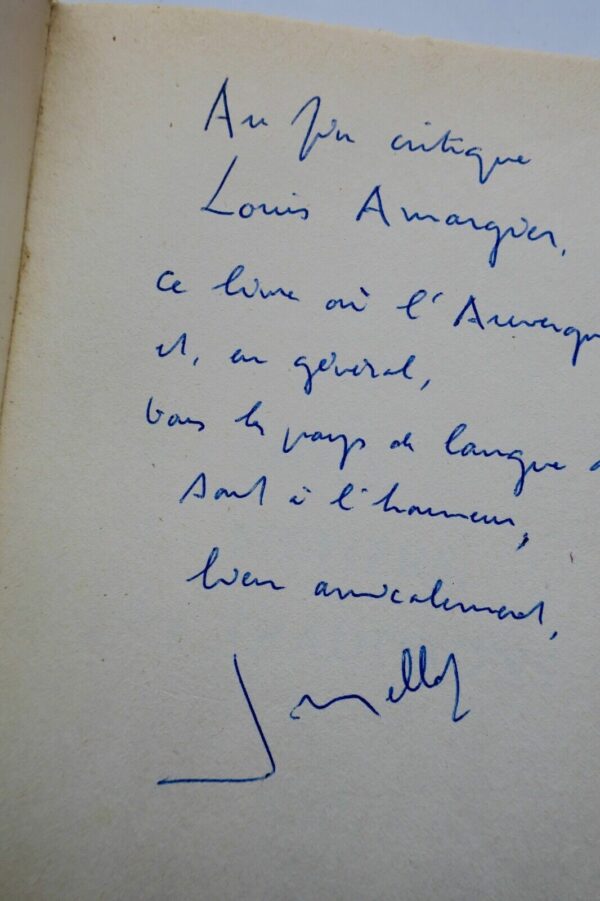 Au fin critique
Louis Amargier,
ce livre où l'Auvergn
et, en général,
tous les pays de langue d
sont à l'honneur,
bien amicalement,